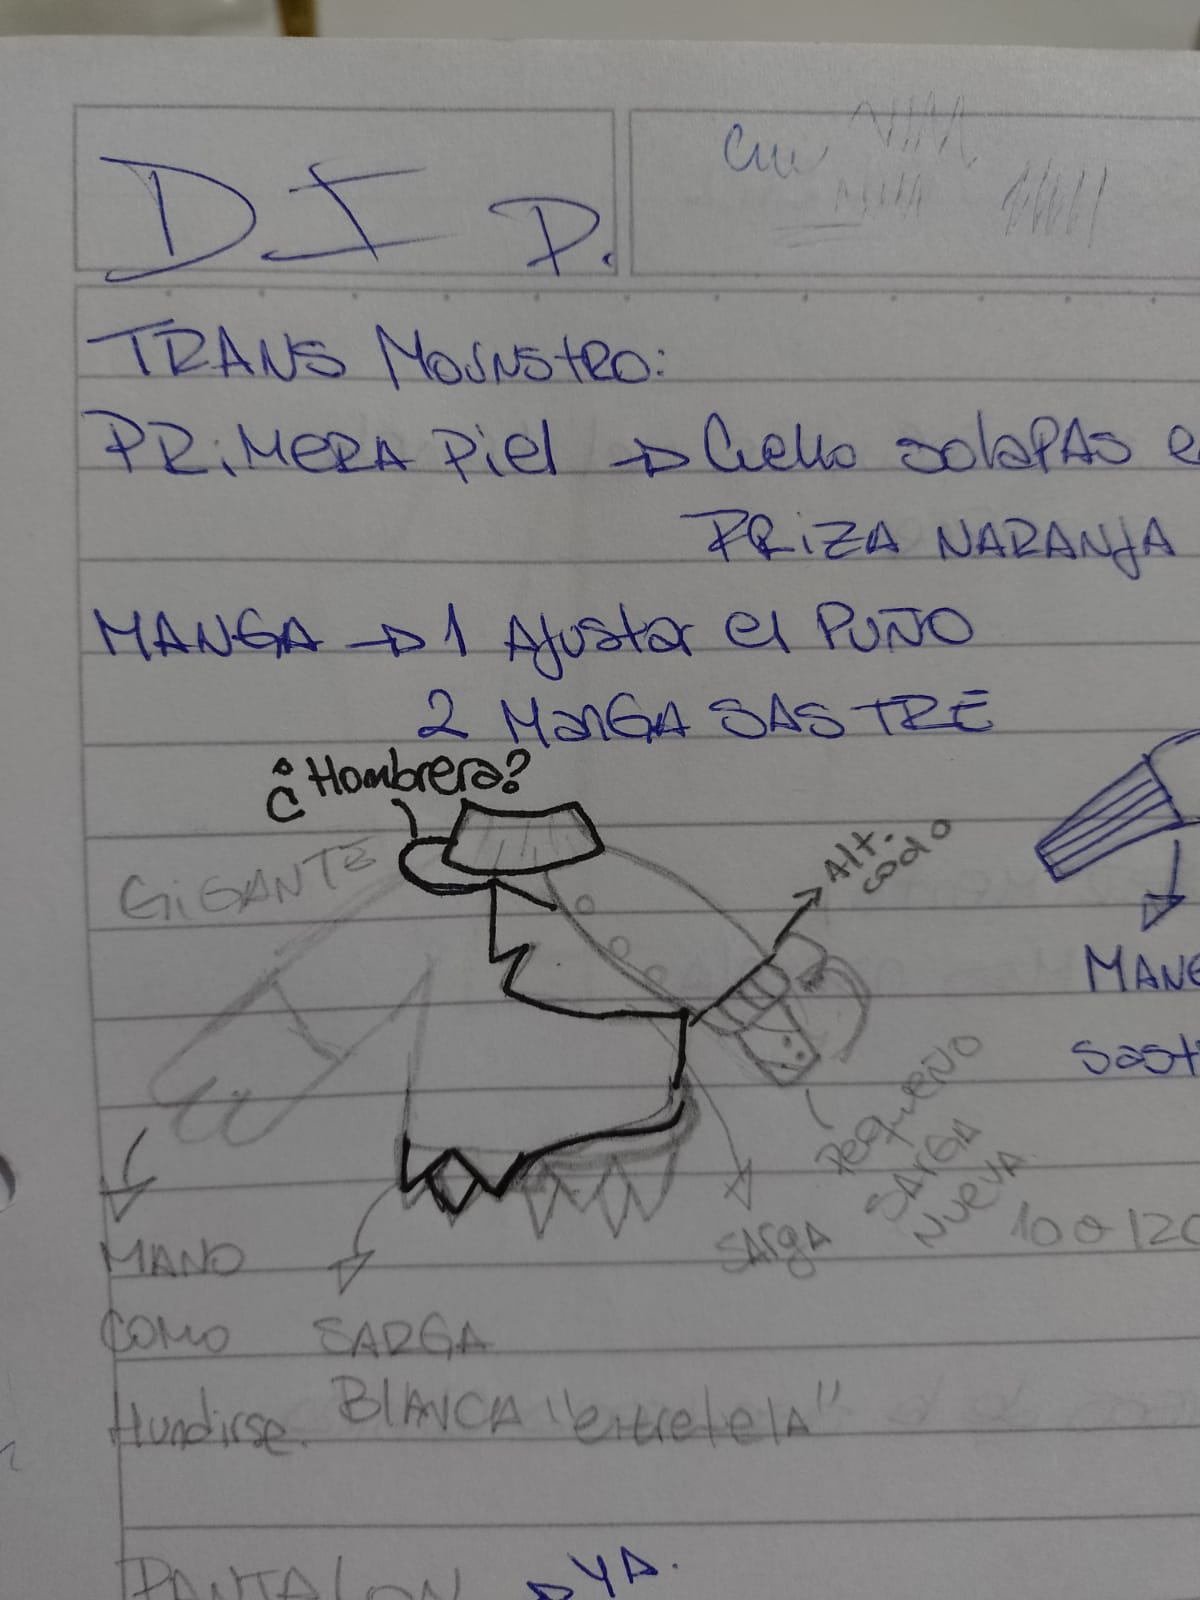 DI P.
TRANS MOUNSTRO:
PRIMERA PIEL → Cuello solaPAS e
PRIZA NARANJA
MANGA → 1 AJUStar el PUÑO
2 MANGA SASTRE
¿Hombrera?
GIGANTE
Alt.
codo
MANG
Sast
PEQUEÑO
SARGA
NUEVA
10 o 120
SARgA
MANO
COMO
Hundirse.
SARGA
BLANCA "entretelA"
PANTALON → YA.